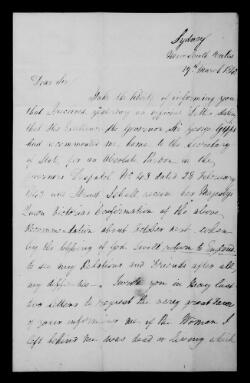 Sydney
New South Wales
19th March 1840
Dear Sir
Take the liberty of informing you
that I received yesterday an Letter
that His Excellency the Governor Sir George Gipps
had recommended me home to the secretary
of State for an Absolute Pardon in the
Governors Despatch No 43 dated 28 February
1840 and I shall receive her Majesty's
Queen Victoria's Confirmation of the above
Recommendation about October next when
by the blessing of God I will return to England
to see my Relations and Friends after all
my difficulties I wrote you in
two letters to request the very great favor
of your informing me if the Woman I
left behind me was dead or living which